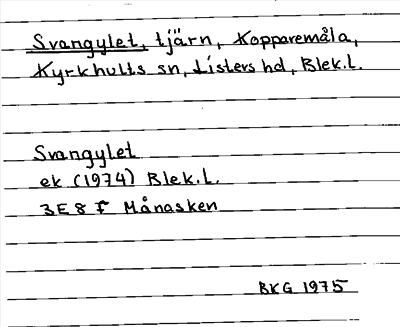 Svangylet, tjärn, Kopparemåla,
Kyrkhults sn, Listers hd, Blek.l.
Svangylet
ek (1974) Blek.l.
3E 8 f Månasken
BKG 1975